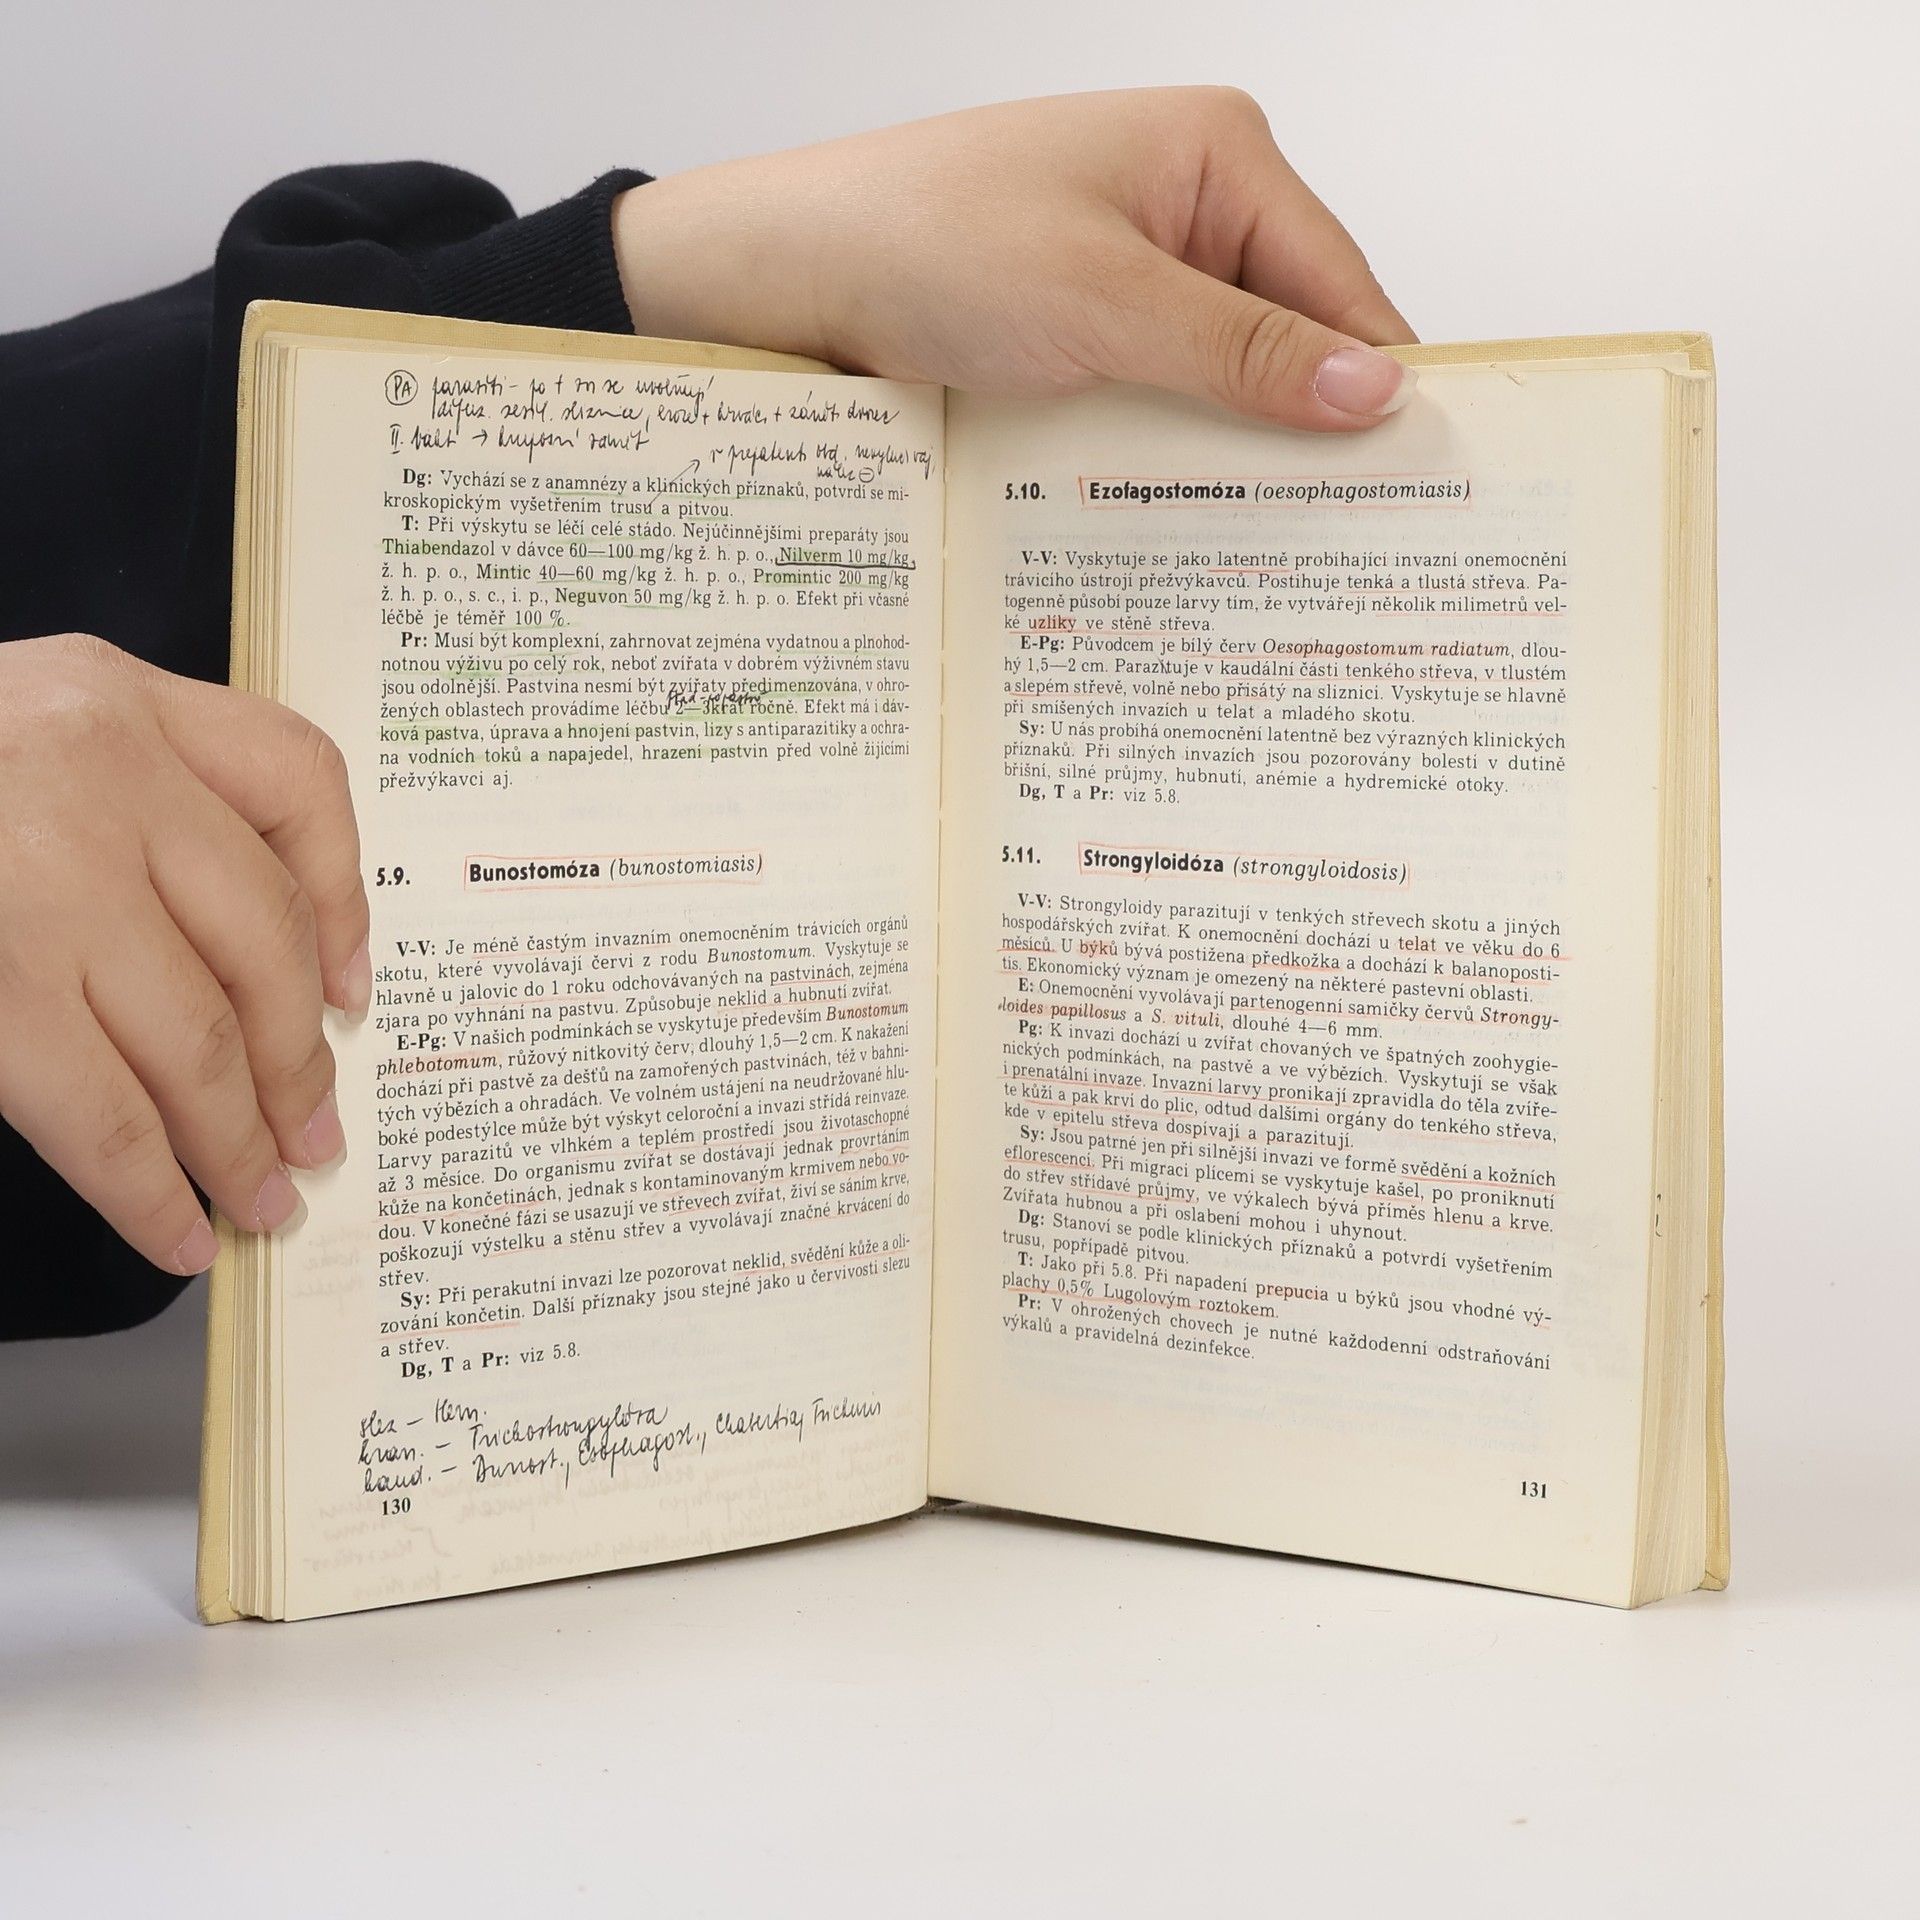 PA parasiti – po + zv se uvolňují
sliznice, eroze + krvác. + zánět
II. bakt → kruposní zánět
v prepatent. obd. nevyluč. vaj.
nález ⊖
Dg: Vychází se z anamnézy a klinických příznaků, potvrdí se mi-
kroskopickým vyšetřením trusu a pitvou.
T: Při výskytu se léčí celé stádo. Nejúčinnějšími preparáty jsou
Thiabendazol v dávce 60—100 mg/kg ž. h. p. o., Nilverm 10 mg/kg
ž. h. p. o., Mintic 40—60 mg/kg ž. h. p. o., Promintic 200 mg/kg
ž. h. p. o., s. c., i. p., Neguvon 50 mg/kg ž. h. p. o. Efekt při včasné
léčbě je téměř 100 %.
Pr: Musí být komplexní, zahrnovat zejména vydatnou a plnohod-
notnou výživu po celý rok, neboť zvířata v dobrém výživném stavu
jsou odolnější. Pastvina nesmí být zvířaty předimenzována, v ohro-
žených oblastech provádíme léčbu 2—3krát ročně. Efekt má i dáv-
ková pastva, úprava a hnojení pastvin, lizy s antiparazitiky a ochra-
na vodních toků a napajedel, hrazení pastvin před volně žijícími
přežvýkavci aj.
5.9. Bunostomóza (bunostomiasis)
V-V: Je méně častým invazním onemocněním trávicích orgánů
skotu, které vyvolávají červi z rodu Bunostomum. Vyskytuje se
hlavně u jalovic do 1 roku odchovávaných na pastvinách, zejména
zjara po vyhnání na pastvu. Způsobuje neklid a hubnutí zvířat.
E-Pg: V našich podmínkách se vyskytuje především Bunostomum
phlebotomum, růžový nitkovitý červ, dlouhý 1,5—2 cm. K nakažení
dochází při pastvě za dešťů na zamořených pastvinách, též v bahni-
tých výbězích a ohradách. Ve volném ustájení na neudržované hlu-
boké podestýlce může být výskyt celoroční a invazi střídá reinvaze.
Larvy parazitů ve vlhkém a teplém prostředí jsou životaschopné
až 3 měsíce. Do organismu zvířat se dostávají jednak provrtáním
kůže na končetinách, jednak s kontaminovaným krmivem nebo vo-
dou. V konečné fázi se usazují ve střevech zvířat, živí se sáním krve,
poškozují výstelku a stěnu střev a vyvolávají značné krvácení do
střev.
Sy: Při perakutní invazi lze pozorovat neklid, svědění kůže a oli-
zování končetin. Další příznaky jsou stejné jako u červivosti slezu
a střev.
Dg, T a Pr: viz 5.8.
slez – Hem.
kran. – Trichostrongylóza
kaud. – Bunost., Esophagost., Chabertia, Trichuris
130
5.10. Ezofagostomóza (oesophagostomiasis)
V-V: Vyskytuje se jako latentně probíhající invazní onemocnění
trávicího ústrojí přežvýkavců. Postihuje tenká a tlustá střeva. Pa-
togenně působí pouze larvy tím, že vytvářejí několik milimetrů vel-
ké uzlíky ve stěně střeva.
E-Pg: Původcem je bílý červ Oesophagostomum radiatum, dlou-
hý 1,5—2 cm. Parazituje v kaudální části tenkého střeva, v tlustém
a slepém střevě, volně nebo přisátý na sliznici. Vyskytuje se hlavně
při smíšených invazích u telat a mladého skotu.
Sy: U nás probíhá onemocnění latentně bez výrazných klinických
příznaků. Při silných invazích jsou pozorovány bolesti v dutině
břišní, silné průjmy, hubnutí, anémie a hydremické otoky.
Dg, T a Pr: viz 5.8.
5.11. Strongyloidóza (strongyloidosis)
V-V: Strongyloidy parazitují v tenkých střevech skotu a jiných
hospodářských zvířat. K onemocnění dochází u telat ve věku do 6
měsíců. U býků bývá postižena předkožka a dochází k balanoposti-
tis. Ekonomický význam je omezený na některé pastevní oblasti.
E: Onemocnění vyvolávají partenogenní samičky červů Strongy-
loides papillosus a S. vituli, dlouhé 4—6 mm.
Pg: K invazi dochází u zvířat chovaných ve špatných zoohygie-
nických podmínkách, na pastvě a ve výbězích. Vyskytují se však
i prenatální invaze. Invazní larvy pronikají zpravidla do těla zvíře-
te kůží a pak krví do plic, odtud dalšími orgány do tenkého střeva,
kde v epitelu střeva dospívají a parazitují.
Sy: Jsou patrné jen při silnější invazi ve formě svědění a kožních
eflorescencí. Při migraci plícemi se vyskytuje kašel, po proniknutí
do střev střídavé průjmy, ve výkalech bývá příměs hlenu a krve.
Zvířata hubnou a při oslabení mohou i uhynout.
Dg: Stanoví se podle klinických příznaků a potvrdí vyšetřením
trusu, popřípadě pitvou.
T: Jako při 5.8. Při napadení prepucia u býků jsou vhodné vý-
plachy 0,5% Lugolovým roztokem.
Pr: V ohrožených chovech je nutné každodenní odstraňování
výkalů a pravidelná dezinfekce.
131